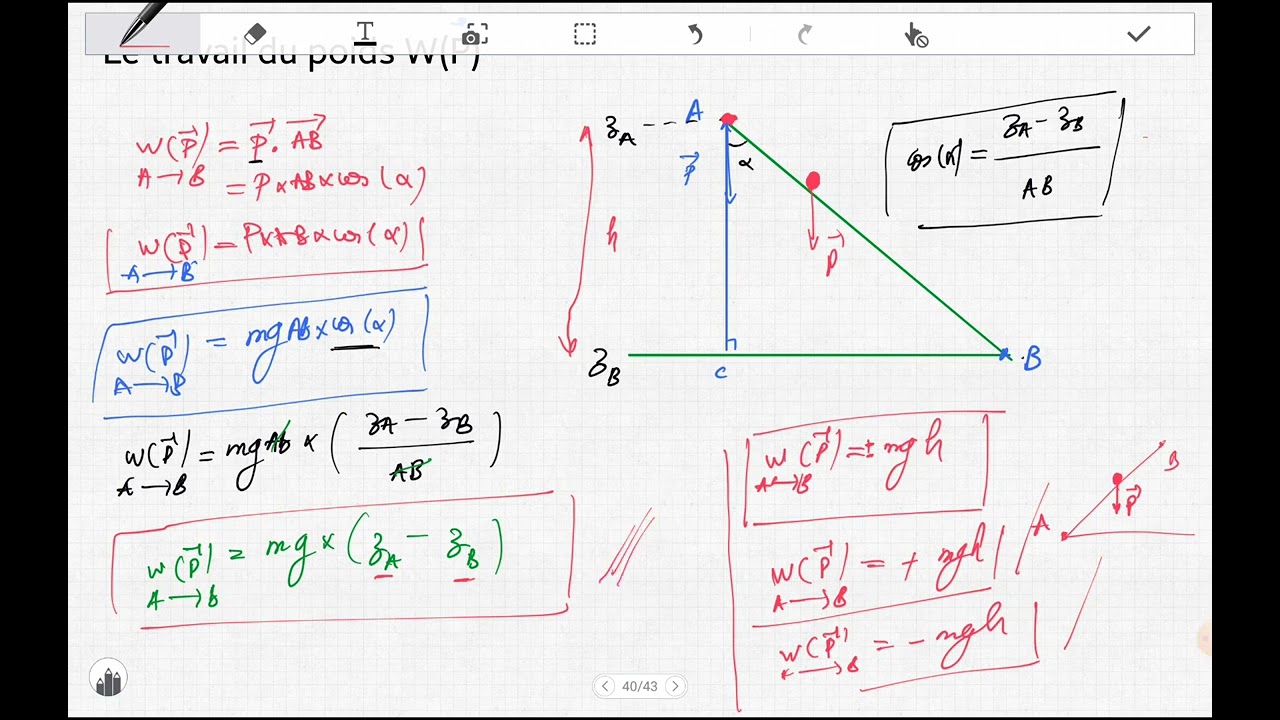 T
Le travail du poids W(P)
W(P⃗) = P⃗ . AB⃗
A → B
= P × AB × cos(α)
W(P⃗) = P × AB × cos(α)
A → B
W(P⃗) = mg AB × cos(α)
A → B
W(P⃗) = mg AB × (zA − zB / AB)
A → B
W(P⃗) = mg × (zA − zB)
A → B
zA
A
α
P⃗
h
P⃗
zB
C
B
cos(α) = zA − zB / AB
W(P⃗) = ± mgh
A → B
W(P⃗) = + mgh
A → B
W(P⃗) = − mgh
A → B
B
P⃗
A
40/43